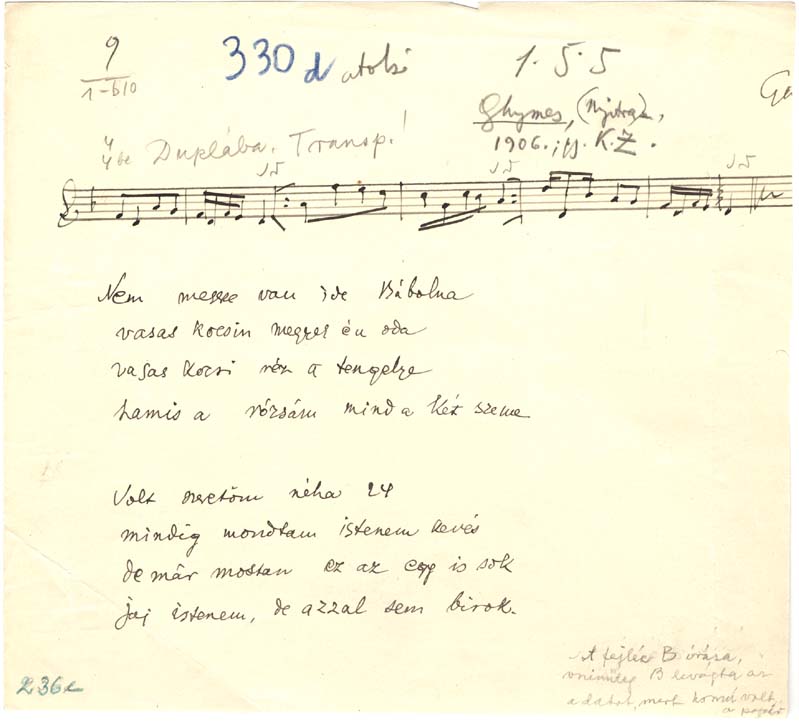 9
1-b10
330 d utolsó
1. 5. 5
Ghymes, (Nyitra),
1906. K.Z.
4/4 be Duplába. Transp.!
Nem messze van ide Bábolna
vasas kocsin megyek én oda
vasas kocsi réz a tengelye
hamis a rózsám mind a két szeme
Volt szeretőm néha 24
mindig mondtam istenem kevés
de már mostan ez az egy is sok
jaj istenem, de azzal sem birok.
A fejléc B írása,
B levágta az
adatot, mert hosszú volt
a papír
236c